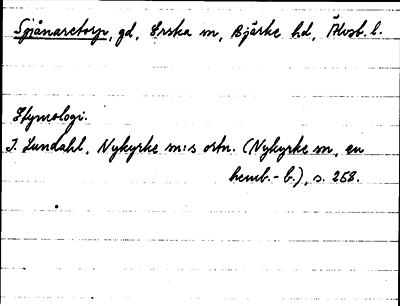 Spånaretorp, gd, Erska sn, Bjärke hd, Älvsb. l.
Etymologi.
I. Lundahl, Nykyrke sn:s ortn. (Nykyrke sn, en
hemb.-b.), s. 258.